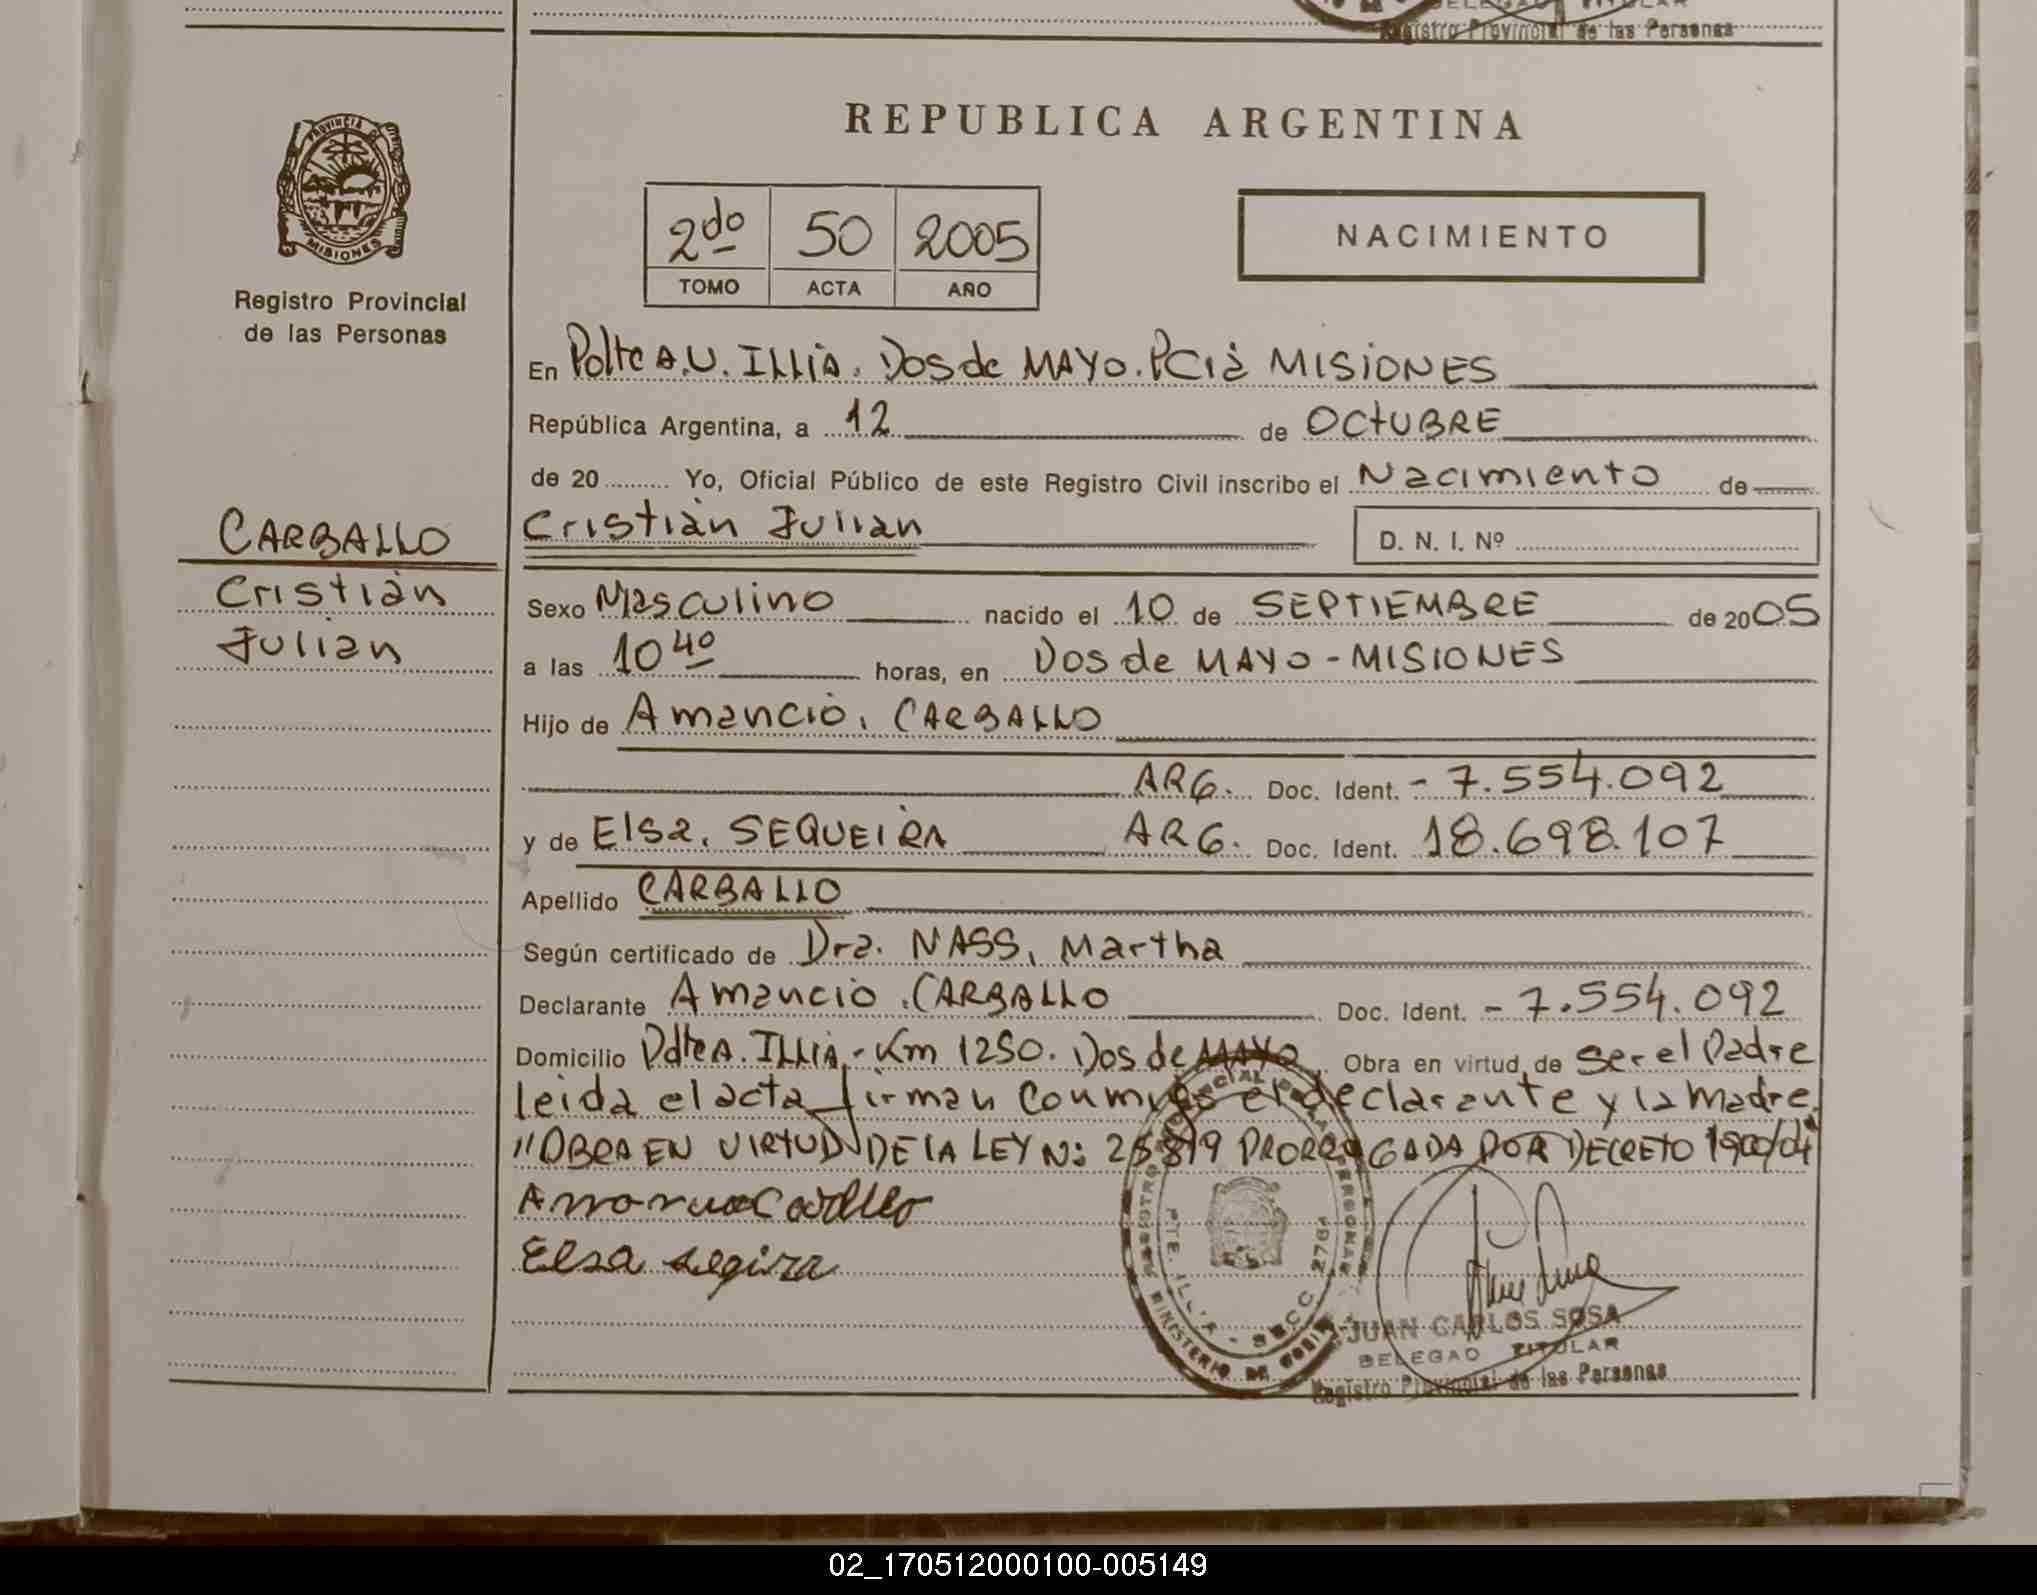 Registro Provincial de las Personas
PROVINCIA DE
MISIONES
Registro Provincial
de las Personas
CARBALLO
Cristián
Julian
REPUBLICA ARGENTINA
2do 50 2005
TOMO ACTA AÑO
NACIMIENTO
En Pdte A.U. ILLIA. Dos de MAYO. PCIA MISIONES
República Argentina, a 12 de OCTUBRE
de 20 Yo, Oficial Público de este Registro Civil inscribo el Nacimiento de
Cristián Julian D. N. I. Nº
Sexo Masculino nacido el 10 de SEPTIEMBRE de 2005
a las 10 40 horas, en Dos de MAYO - MISIONES
Hijo de Amancio, CARBALLO
ARG. Doc. Ident. - 7.554.092
y de Elsa, SEQUEIRA ARG. Doc. Ident. 18.698.107
Apellido CARBALLO
Según certificado de Dra. NASS, Martha
Declarante Amancio, CARBALLO Doc. Ident. - 7.554.092
Domicilio Pdte A. ILLIA - Km 1250. Dos de MAYO Obra en virtud de Ser el Padre
leida el acta firman conmigo el declarante y la madre.
"OBRA EN VIRTUD DE LA LEY N: 25819 PRORROGADA POR DECRETO 1900/04
Elsa segira
REGISTRO PROVINCIAL DE LAS PERSONAS
MINISTERIO DE GOBIERNO
PTE. ILLIA - SECC 2761
JUAN CARLOS SOSA
DELEGADO TITULAR
Registro Provincial de las Personas
02_170512000100-005149